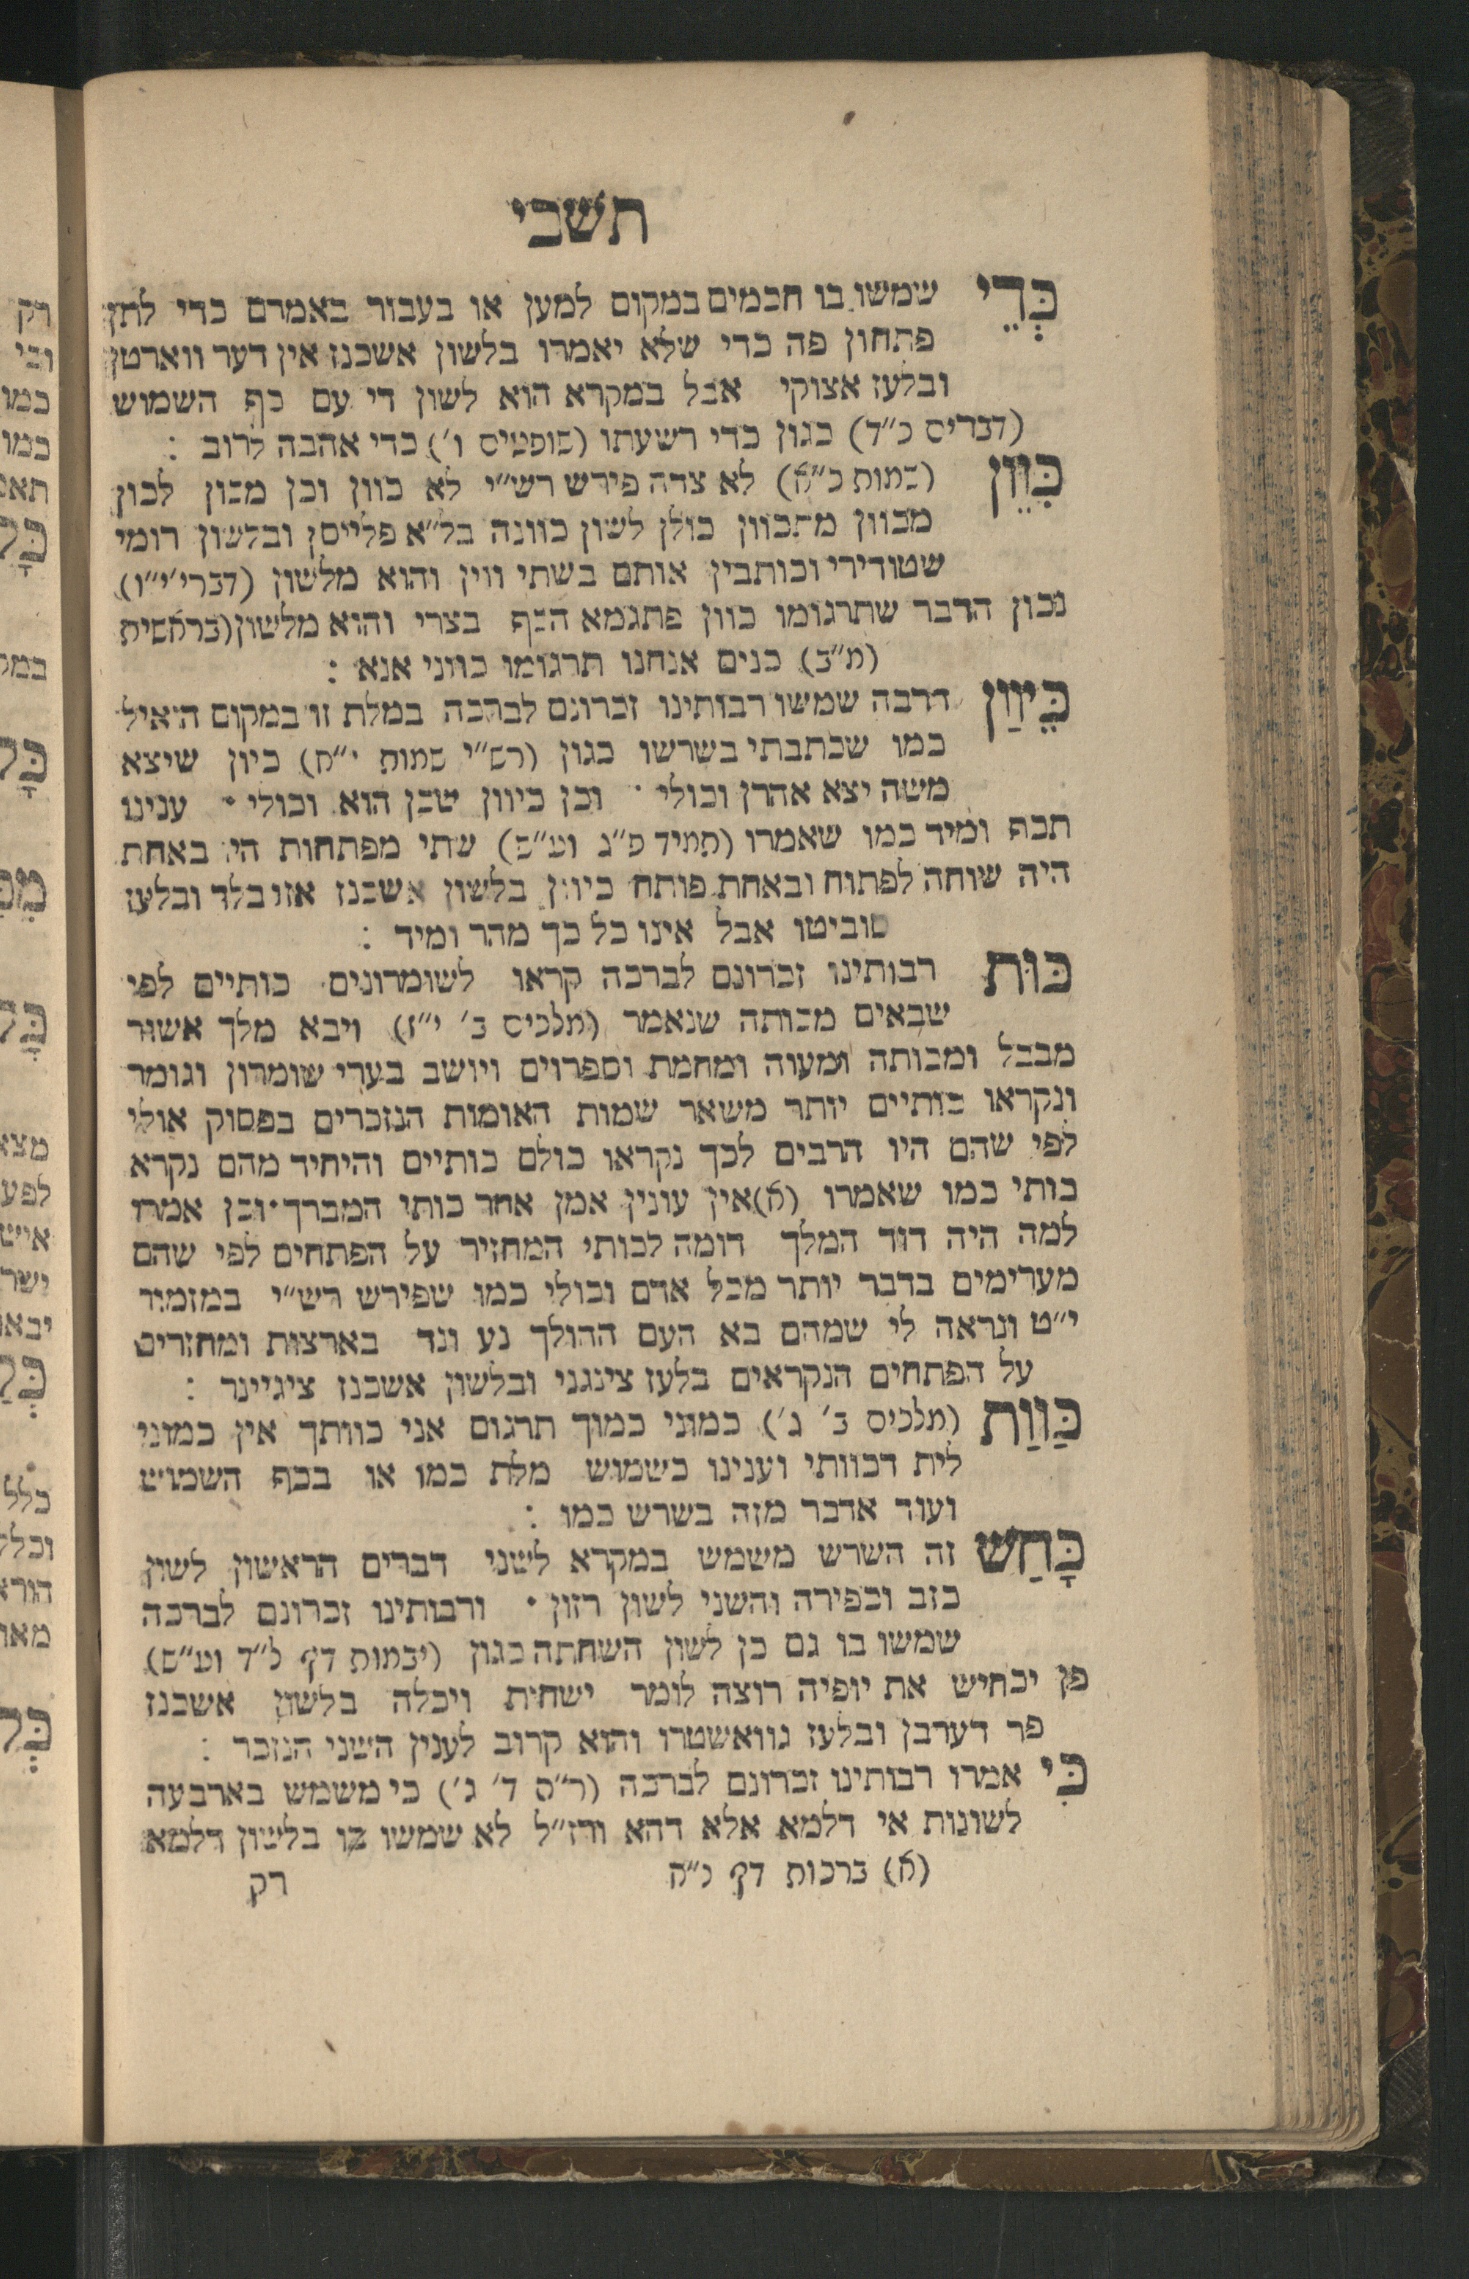 תשבי
כְּדֵי שמשו בו חכמים במקום למען או בעבור באמרם כדי לתן
פתחון פה כדי שלא יאמרו בלשון אשכנז אין דער ווארטן
ובלעז אצוקי אבל במקרא הוא לשון די עם כף השמוש
(דברים כ״ד) כגון כדי רשעתו (שופטים ו׳) כדי אהבה לרוב :
כִּוֵּין (שמות כ״א) לא צדה פירש רש״י לא כוון וכן מכון לכון
מכוון מתכוון כולן לשון כוונה בל״א פלייסן ובלשון רומי
שטודירי וכותבין אותם בשתי ווין והוא מלשון (דברי׳ י״ו)
נכון הדבר שתרגומו כוון פתגמא הכף בצרי והוא מלשון (בראשית
מ״ב) כנים אנחנו תרגומו כווני אנא :
כֵּיוַן דרבה שמשו רבותינו זכרונם לברכה במלת זו במקום הואיל
כמו שכתבתי בשרשו כגון (רש״י שמות י״ח) כיון שיצא
משה יצא אהרן וכולי · וכן כיוון שכן הוא וכולי · ענינו
תכף ומיד כמו שאמרו (תמיד פ״ג וע״ש) שתי מפתחות היו באחת
היה שוחה לפתוח ובאחת פותח כיוון בלשון אשכנז אזו בלד ובלעז
סוביטו אבל אינו כל כך מהר ומיד :
כּוּת רבותינו זכרונם לברכה קראו לשומרונים כותיים לפי
שבאים מכותה שנאמר (מלכים ב׳ י״ז) ויבא מלך אשור
מבבל ומכותה ומעוה ומחמת וספרוים ויושב בערי שומרון וגומר
ונקראו כותיים יותר משאר שמות האומות הנזכרים בפסוק אולי
לפי שהם היו הרבים לכך נקראו כולם כותיים והיחיד מהם נקרא
כותי כמו שאמרו (א) אין עונין אמן אחר כותי המברך · וכן אמרו
למה היה דוד המלך דומה לכותי המחזיר על הפתחים לפי שהם
מערימים בדבר יותר מכל אדם וכולי כמו שפירש רש״י במזמור
י״ט ונראה לי שמהם בא העם ההולך נע ונד בארצות ומחזרים
על הפתחים הנקראים בלעז צינגני ובלשון אשכנז ציגיינר :
כַּוַּת (מלכים ב׳ ג׳) כמוני כמוך תרגום אני כוותך אין כמוני
לית דכוותי וענינו כשמוש מלת כמו או בכף השמוש
ועוד אדבר מזה בשרש כמו :
כָּחַשׁ זה השרש משמש במקרא לשני דברים הראשון לשון
כזב וכפירה והשני לשון רזון · ורבותינו זכרונם לברכה
שמשו בו גם כן לשון השחתה כגון (יבמות דף ל״ד וע״ש)
פן יכחיש את יופיה רוצה לומר ישחית ויכלה בלשון אשכנז
פר דערבן ובלעז גוואשטרו והוא קרוב לענין השני הנזכר :
כִּי אמרו רבותינו זכרונם לברכה (ר״ה ד׳ ג׳) כי משמש בארבעה
לשונות אי דלמא אלא דהא ורז״ל לא שמשו בו בלשון דלמא
(א) ברכות דף כ״ה
רק